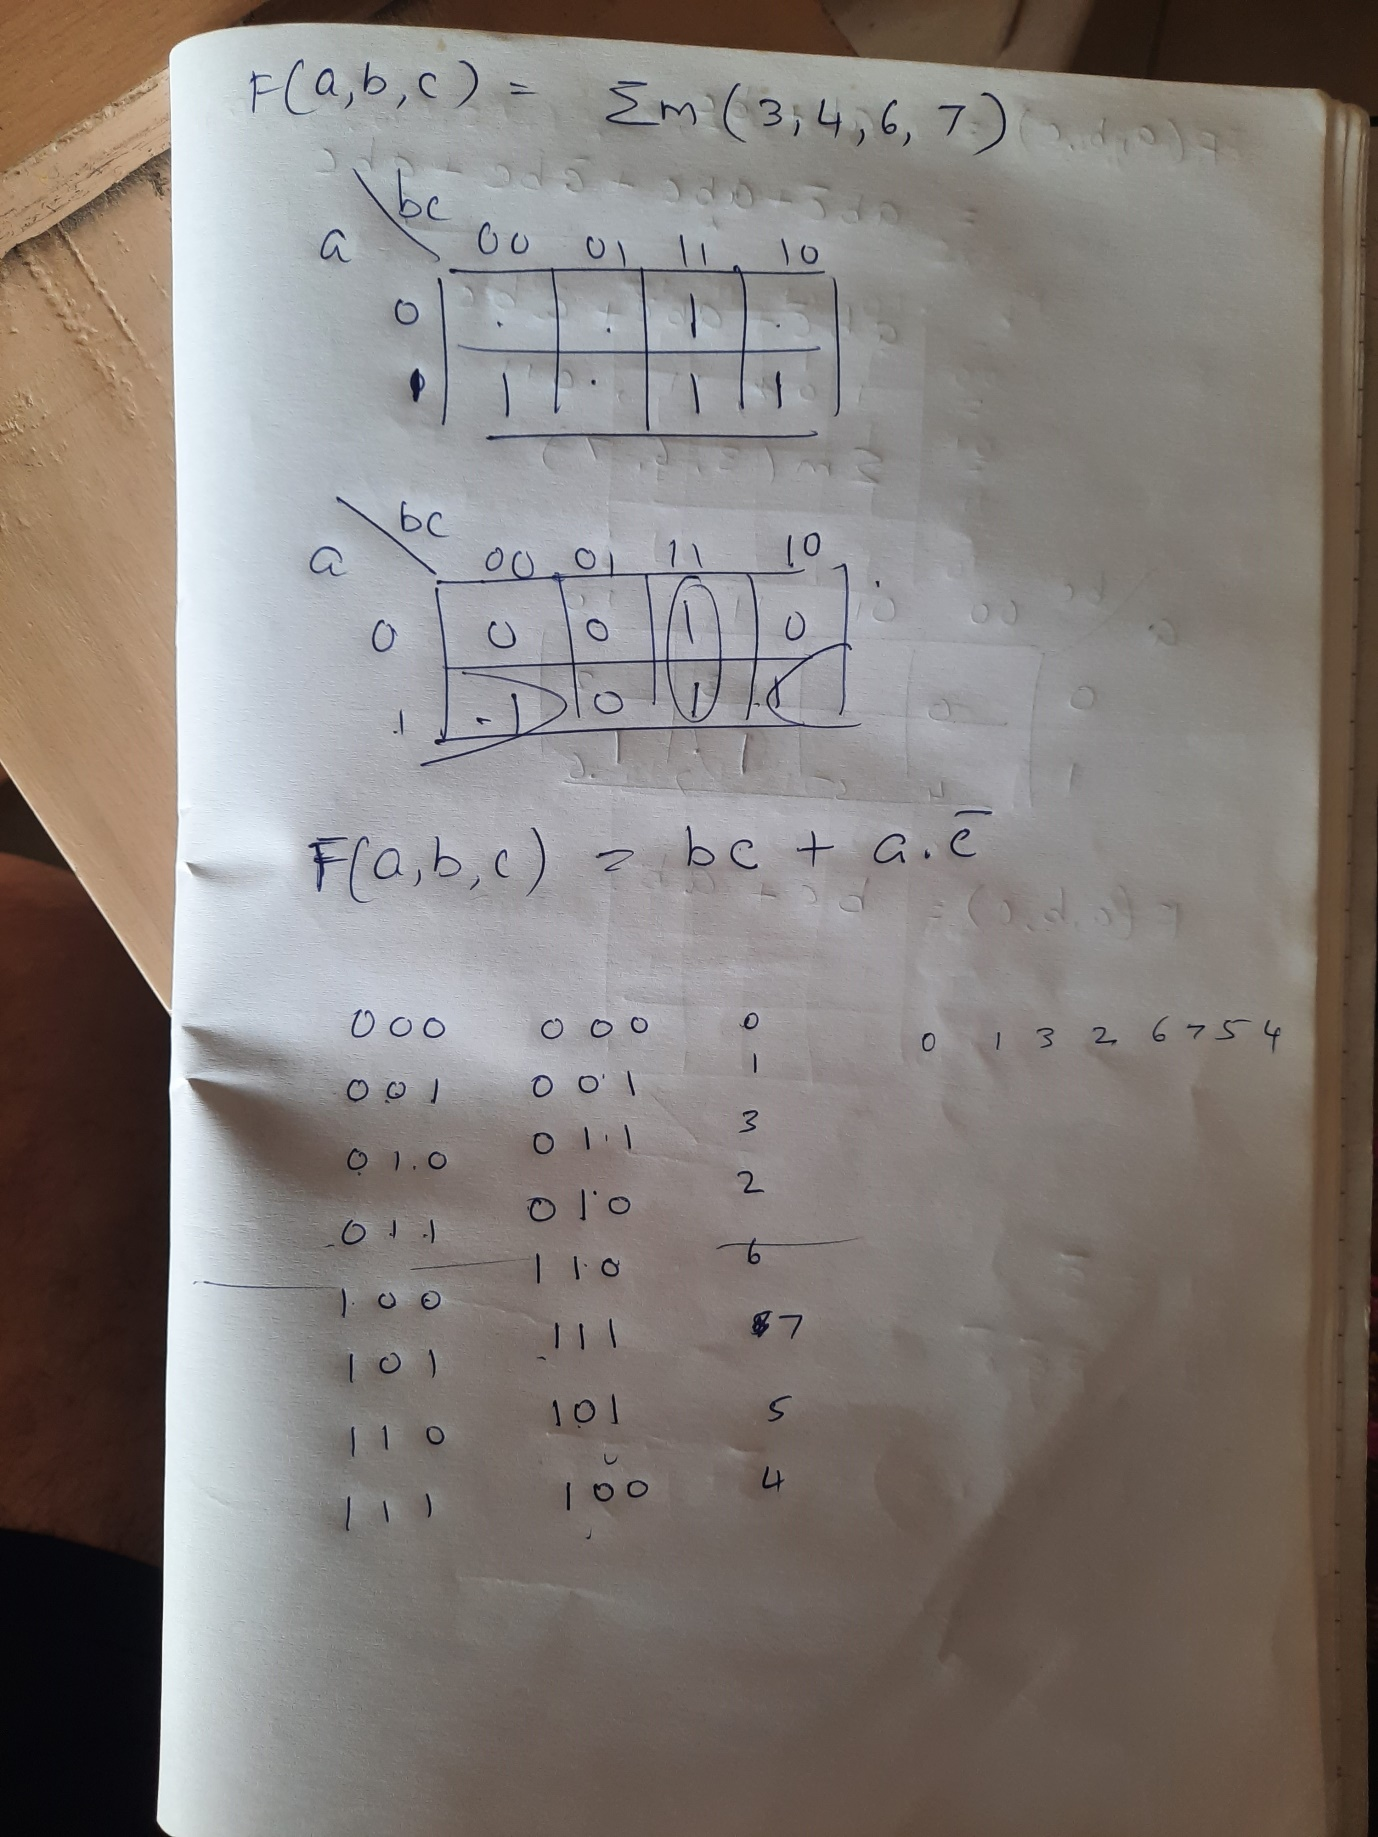 F(a,b,c) = Σm(3,4,6,7)
bc
a 00 01 11 10
0 . . 1 .
1 1 . 1 1
bc
a 00 01 11 10
0 0 0 1 0
1 1 0 1 1
F(a,b,c) = bc + a.c̄
000 000 0 0 1 3 2 6 7 5 4
001 001 1
010 011 3
011 010 2
100 110 6
101 111 7
110 101 5
111 100 4